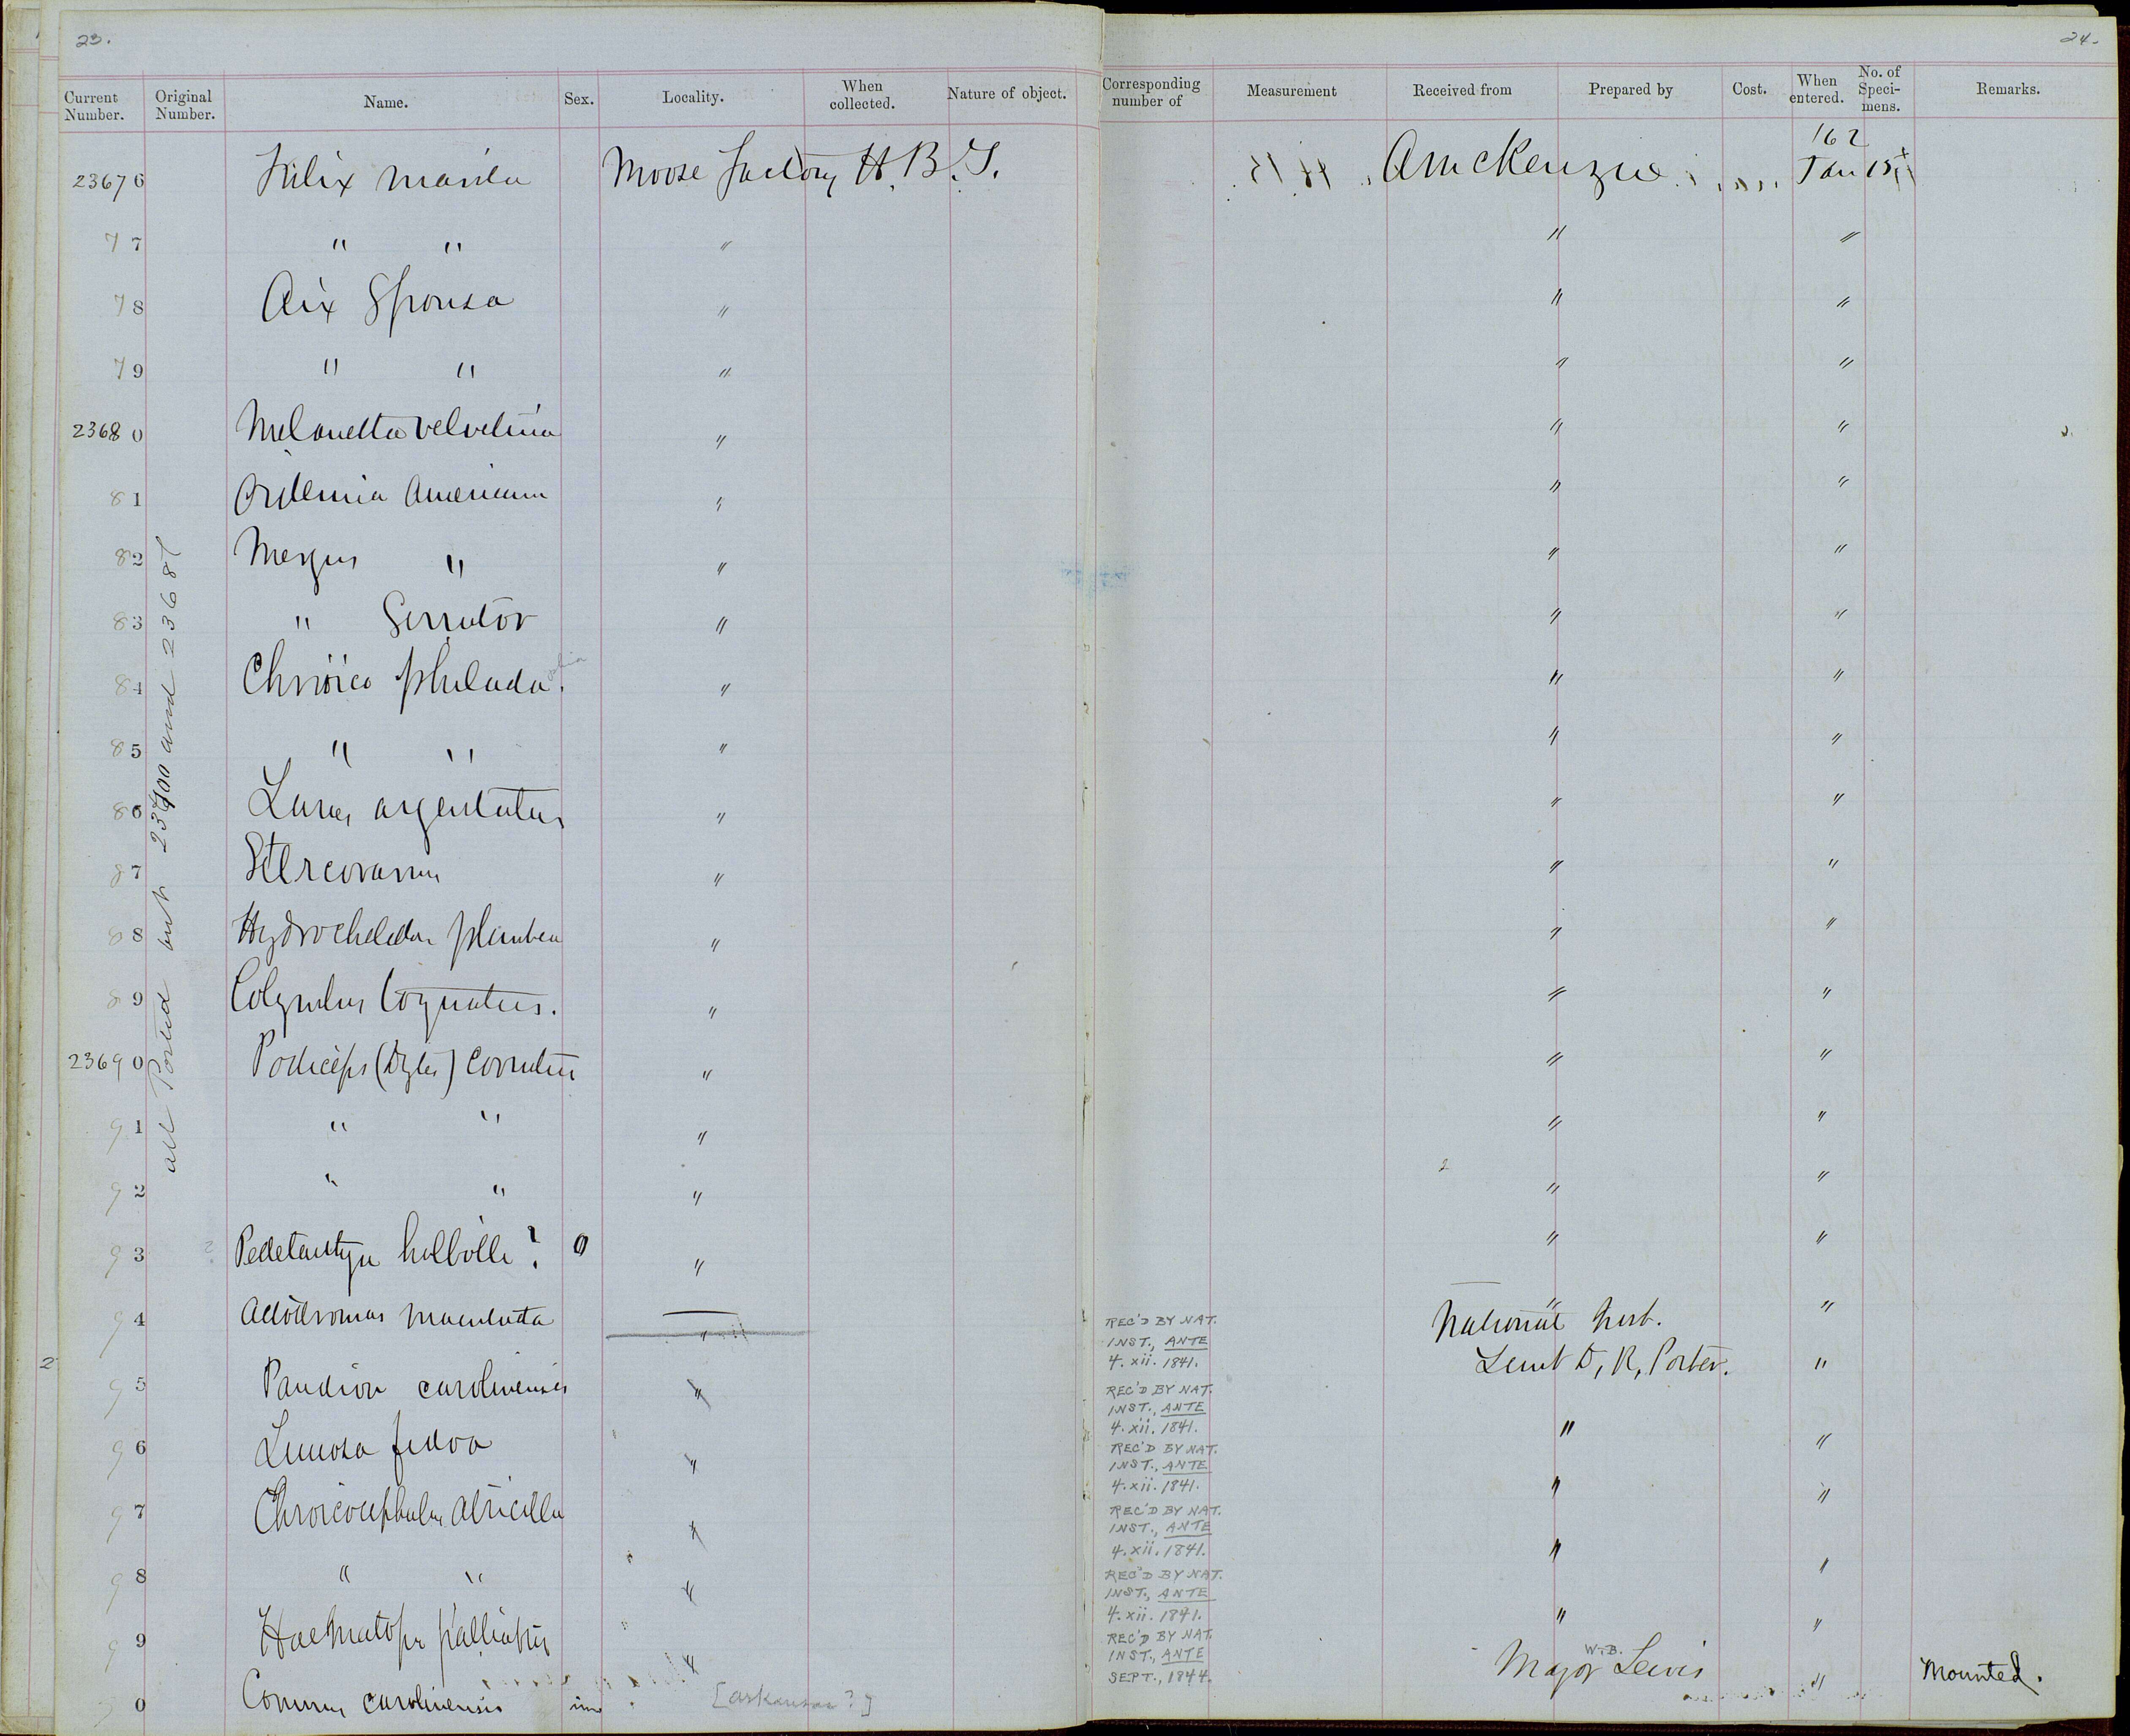 23.
24.
Current Number. Original Number. Name. Sex. Locality. When collected. Nature of object. Corresponding number of Measurement Received from Prepared by Cost. When entered. No. of Specimens. Remarks.
162
23676 Moose factory H.B.T. Jan 15
77 " " " " "
78 Aix Sponsa " " "
79 " " " " "
23680 Melanetta velvetina " " "
81 Americana " " "
82 Mergus " " " "
83 " Serrator " " "
84 Chroico philada. " " "
85 " " " " "
86 Larus argentatus " " "
87 " " "
88 Hydrochelidon plumbea " " "
89 Colymbus " " "
23690 Podiceps (Dytes) Cornutus " " "
91 " " " " "
92 " " " " "
93 holbolli ? " " "
94 Actodromas maculata " REC'D BY NAT. INST., ANTE 4. xii. 1841. National Inst. "
95 Pandion carolinensis " REC'D BY NAT. INST., ANTE 4. xii. 1841. Lieut D, R, Porter. "
96 Limosa fedoa " REC'D BY NAT. INST., ANTE 4. xii. 1841. " "
97 Chroicocephalus atricilla " REC'D BY NAT. INST., ANTE 4. xii. 1841. " "
98 " " " REC'D BY NAT. INST., ANTE 4. xii. 1841. " "
99 Haematopus palliatus " REC'D BY NAT. INST., ANTE SEPT., 1844. " "
0 carolinensis [arkansas?] Major W.B. Lewis " Mounted.
all Posted but 23700 and 23687